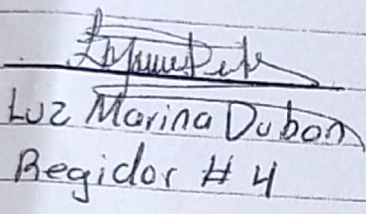 Luz Marina Dubon
Regidor # 4